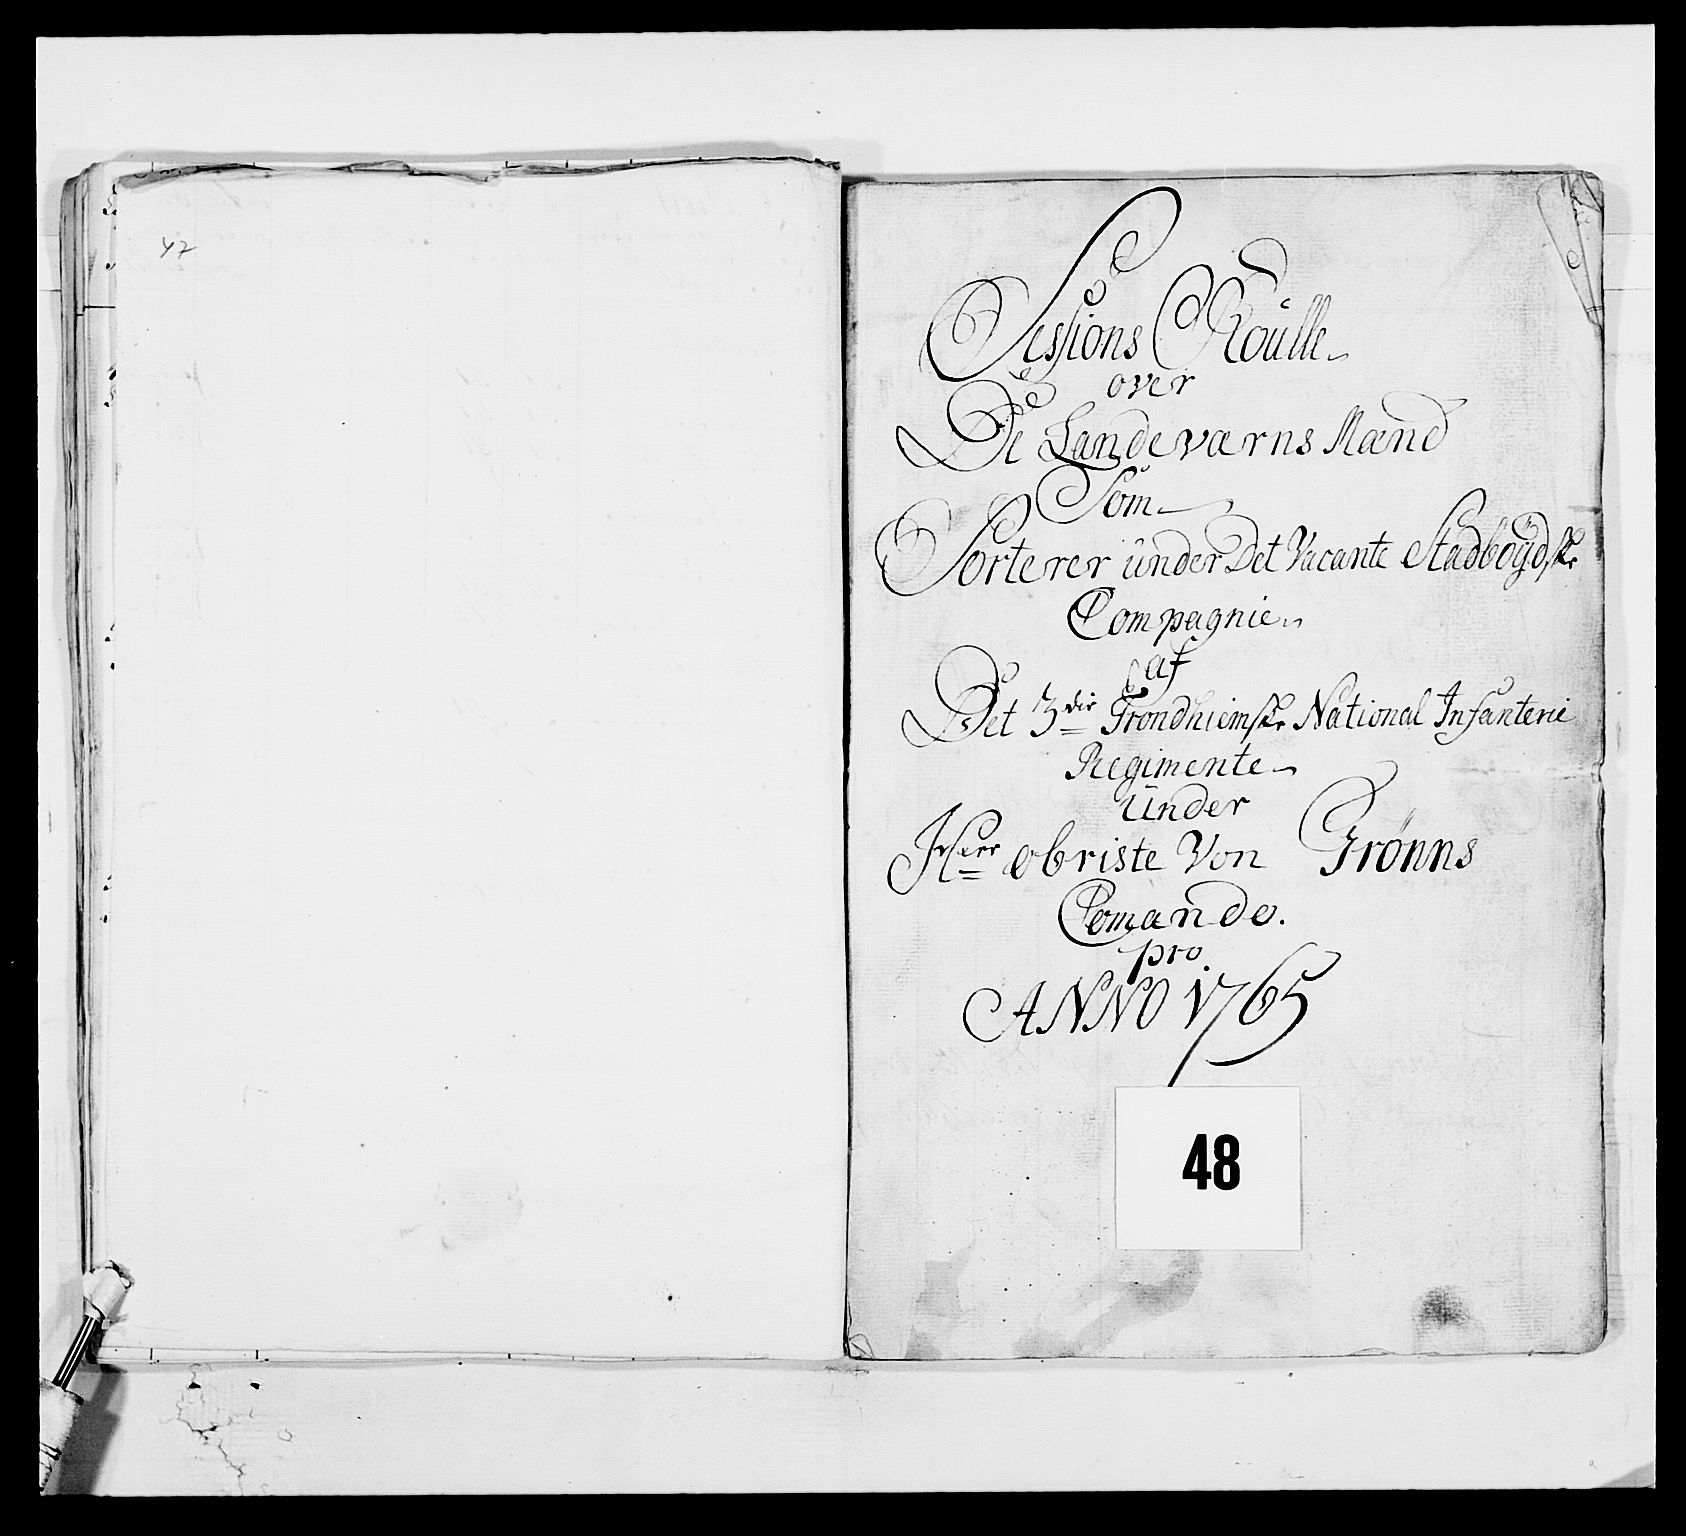 47
Sessions Roülle
over
De Landeværns Mænd
Som
Sorterer ünder Det Vacante Stadboÿdske
Compagnie
af
Det 3die Trondhiemske National Infanterie
Regimente
Ünder
Herr Obriste Von Grønns
Comando.
pro.
ANNO 1765
48